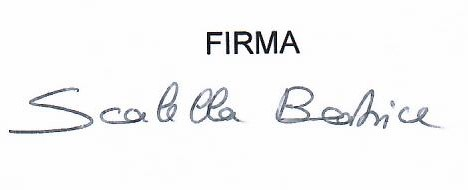 FIRMA
Scalella Beatrice